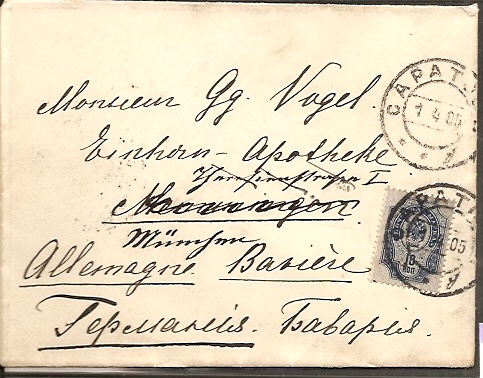 Monsieur Gg. Vogel.
Einhorn-Apotheke
München
Allemagne Bavière
Германия. Бавария.
САРАТ
1 4 05
САРАТ
4 05
10
КОП